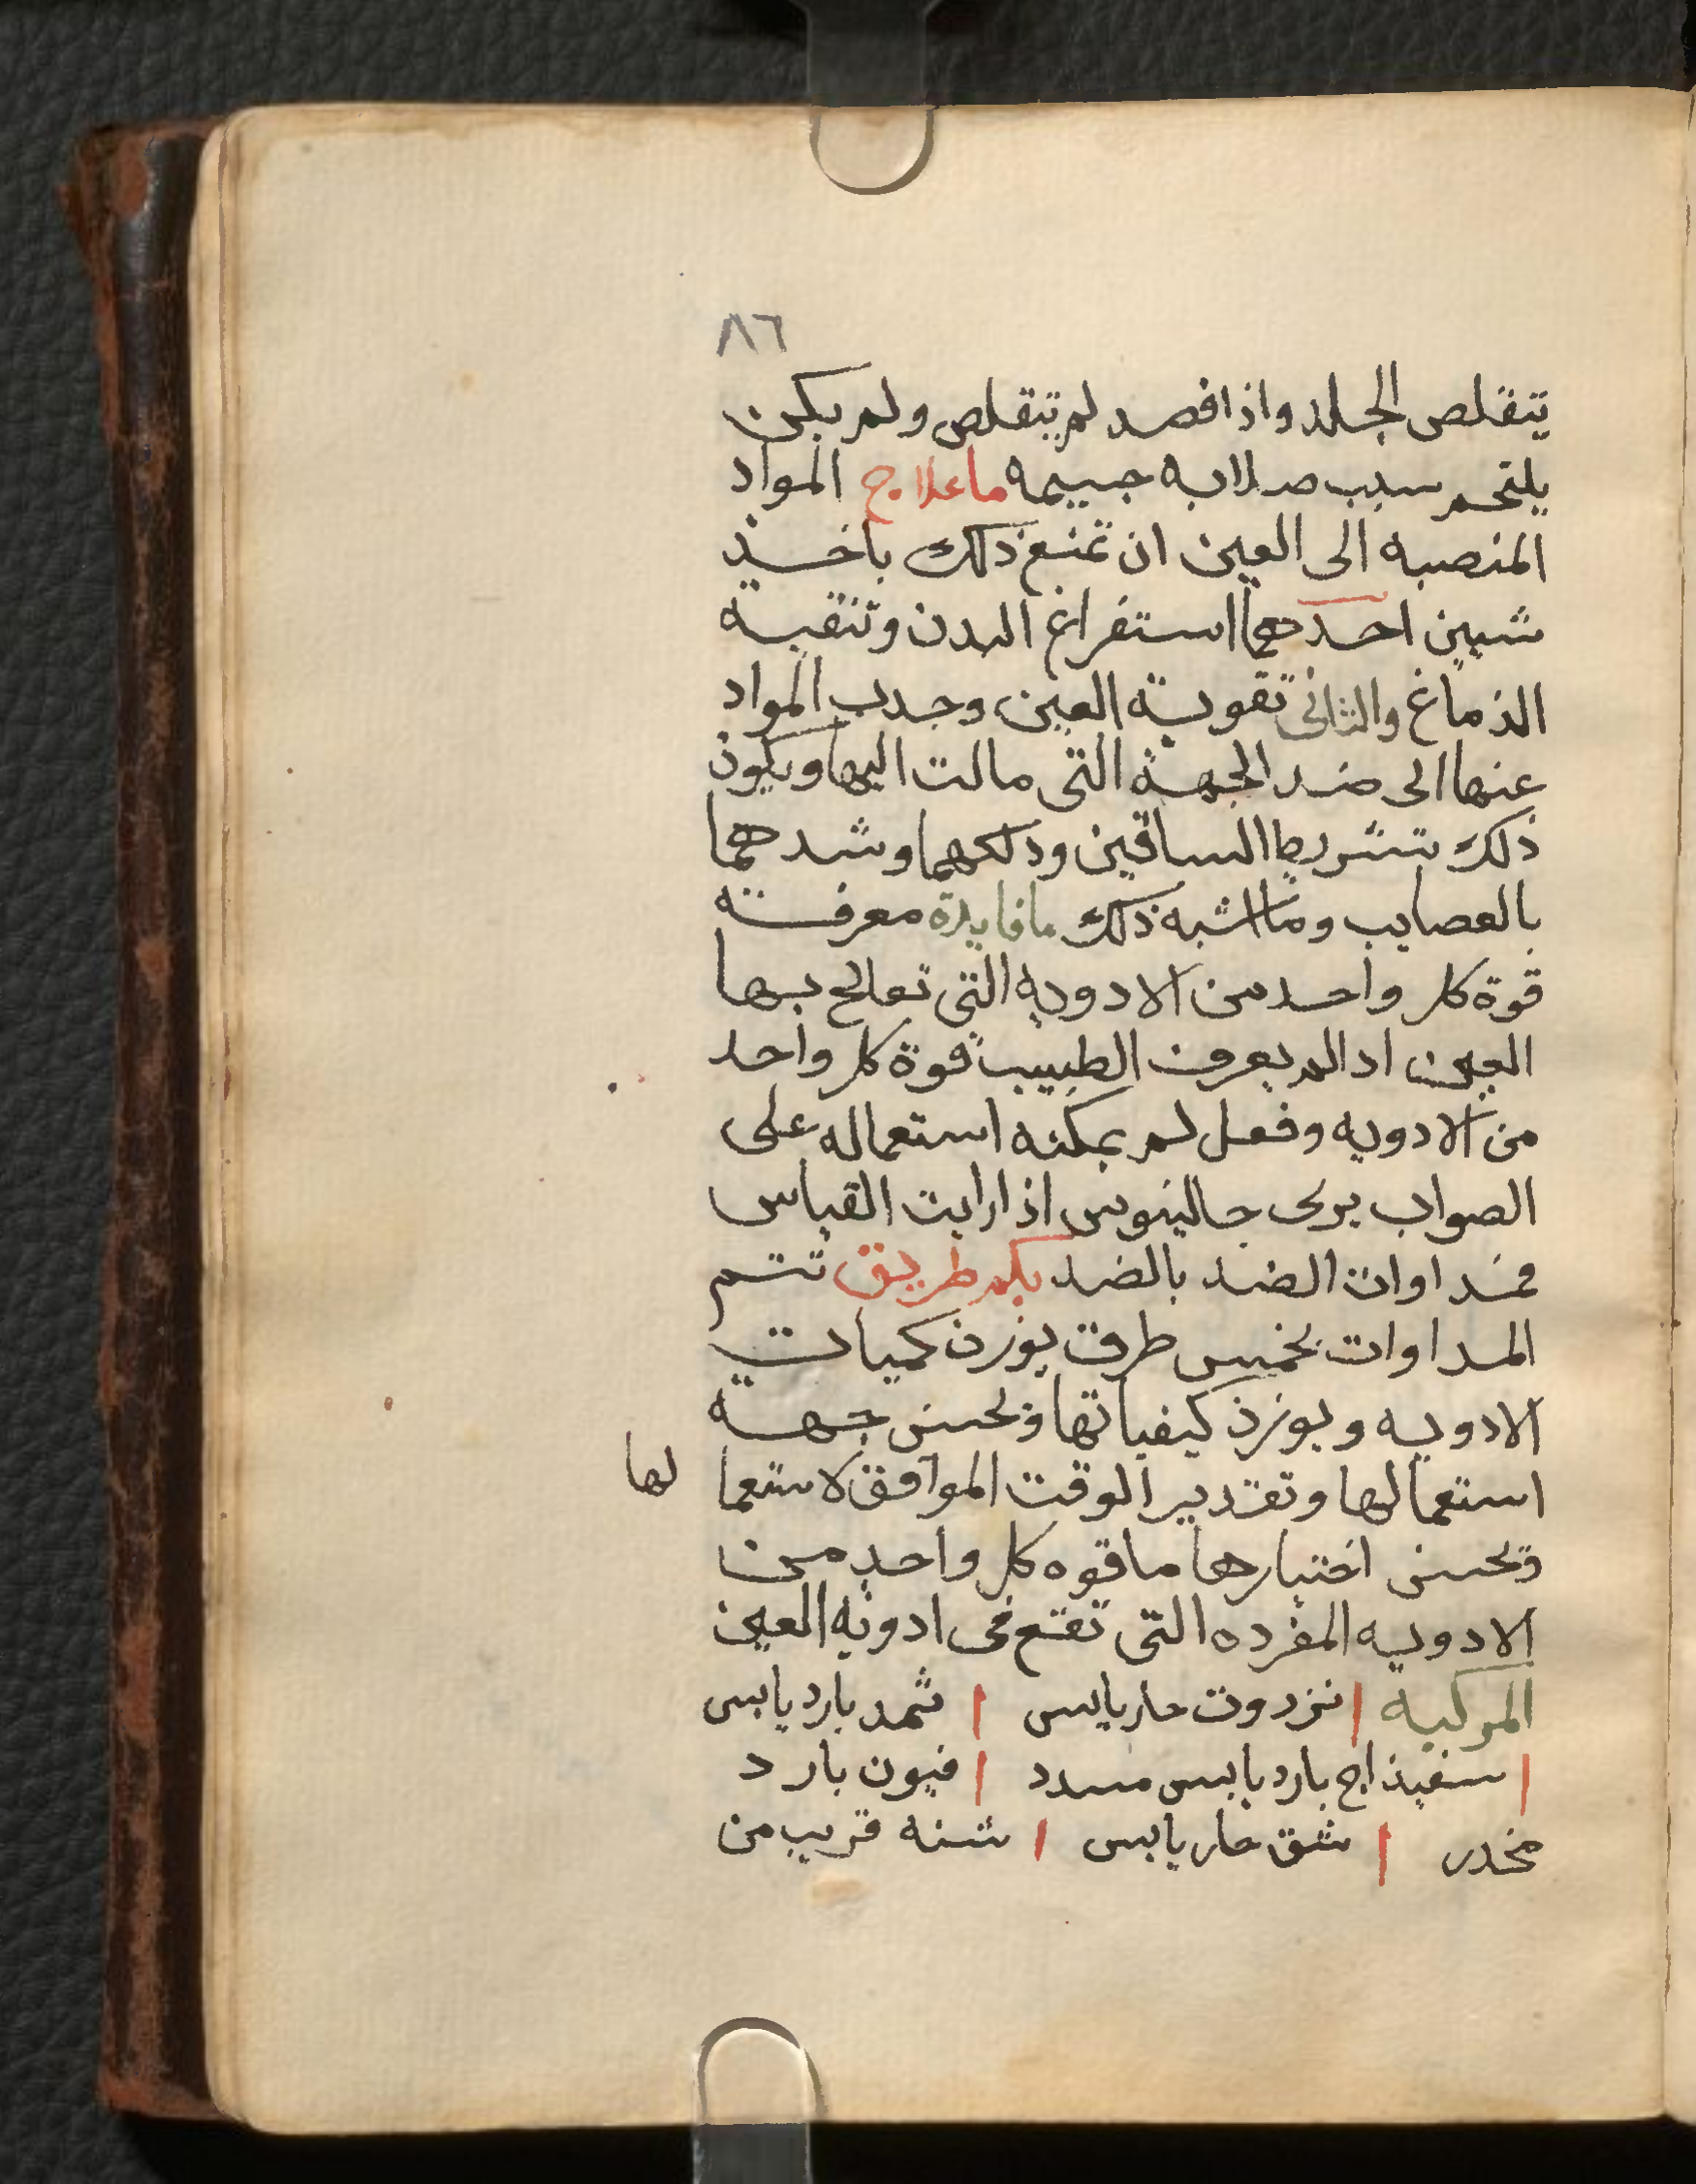 ٨٦
يتقلص الجلد واذا فصد لم يتقلص ولم يكن
يلتحم سبب صلابه جسمه ما علاج المواد
المنصبه الى العين ان تمنع ذلك باخذ
شيين احدهما استفراغ البدن وتنقية
الذماغ والثانى تقوية العين وجدب المواد
عنها الى ضد الجهة التى مالت اليها ويكون
ذلك بتشريط الساقين ودلكهما وشدهما
بالعصايب وما اشبه ذلك ما فايدة معرفة
قوة كل واحد من الادويه التى تعالج بها
العين ادا لم يعرف الطبيب قوة كل واحد
من الادويه وفعل لم يمكنه استعماله على
الصواب يرى جالينوس اذا رايت القياس
فمداوات الضد بالضد بكم طريق تتم
المداوات بخمس طرق بوزن كميات
الادويه وبوزن كيفياتها وبحسن جهة
استعمالها وتقدير الوقت الموافق لاستعما لها
وبحسن اختبارها ما قوه كل واحد من
الادويه المفرده التى تقع فى ادوية العين
المركبه | نزروت حار يابس | ثمد بارد يابس
| سفيذاج بارد يابس مسدد | فيون بارد
مخدر | شق حار يابس | شنه قريب من